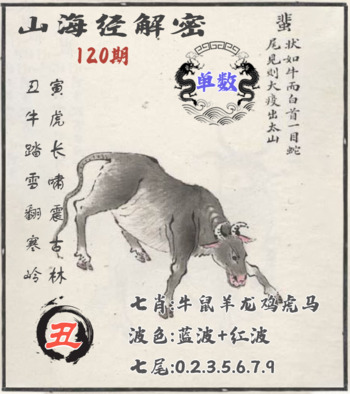 山海经解密
120期
单数
蜚
状如牛而白首一目蛇
尾见则大疫出太山
寅虎长啸震古林
丑牛踏雪翻寒岭
丑
七肖:牛鼠羊龙鸡虎马
波色:蓝波+红波
七尾:0.2.3.5.6.7.9